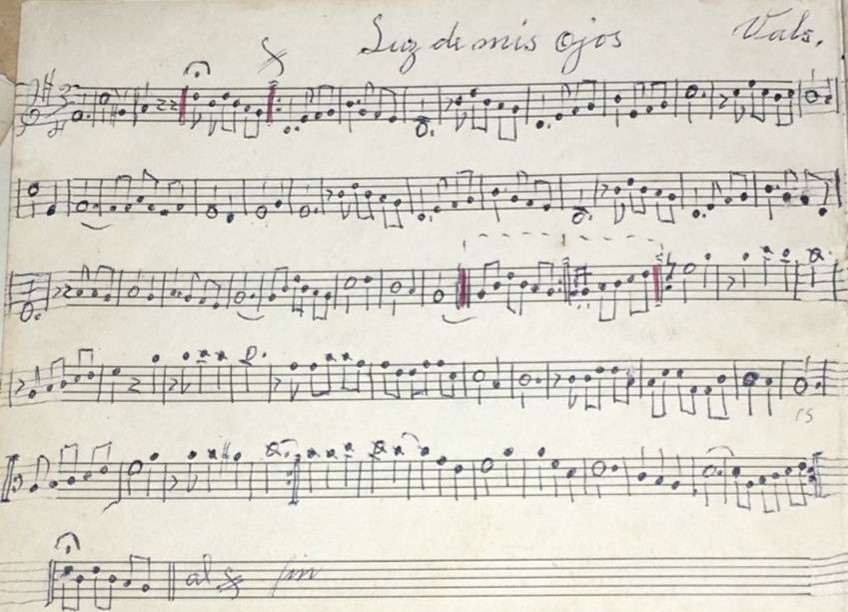 Luz de mis ojos Vals.
al fin